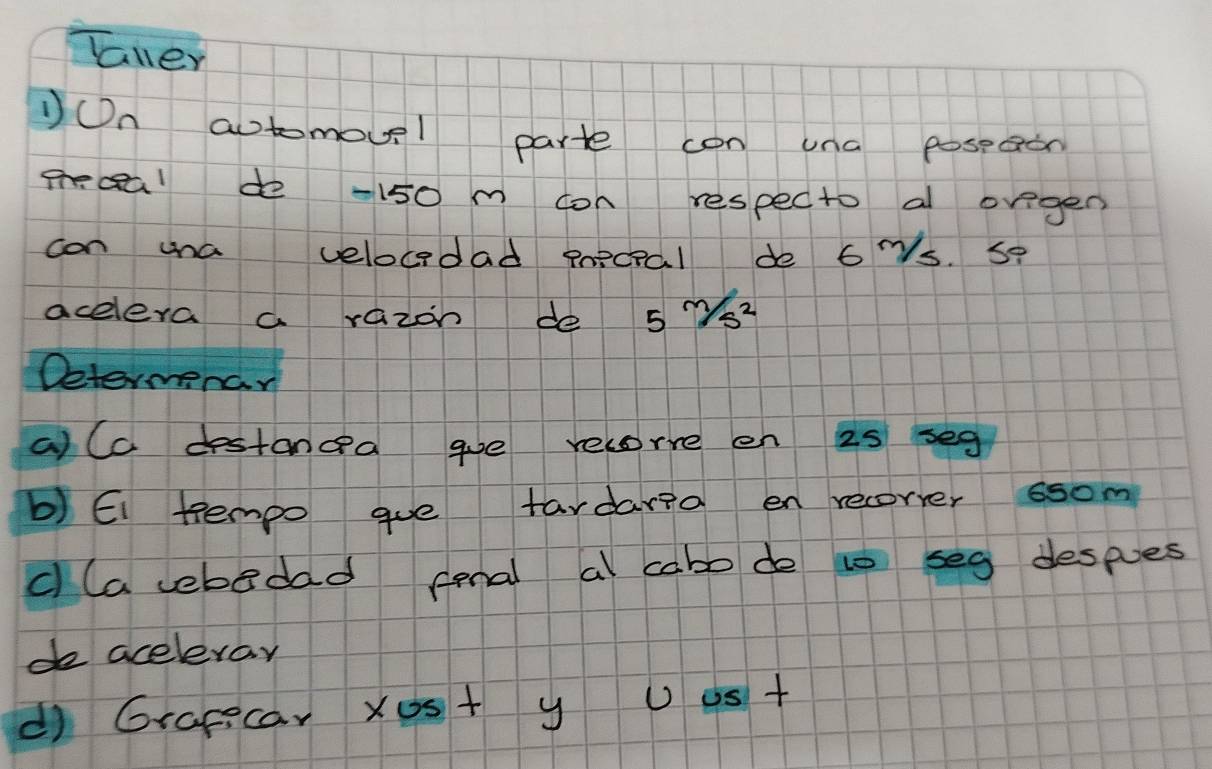 Taller
1) Un automovil parte con una posicion
inicial de -150 m con respecto al origen
con una velocidad inicial de 6 m/s. Si
acelera a razón de 5 m/s²
Determinar
a) La distancia que recorre en 25 seg
b) El tiempo que tardaria en recorrer 650m
c) La velocidad final al cabo de 10 seg despues
de acelerar
d) Graficar x vs t y v vs t